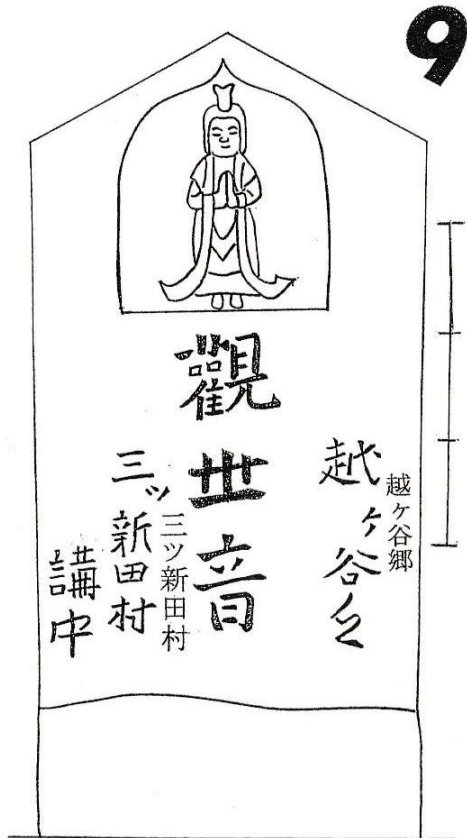 9
觀世音
越ヶ谷郷
越ヶ谷郷
三ッ新田村
三ツ新田村
講中